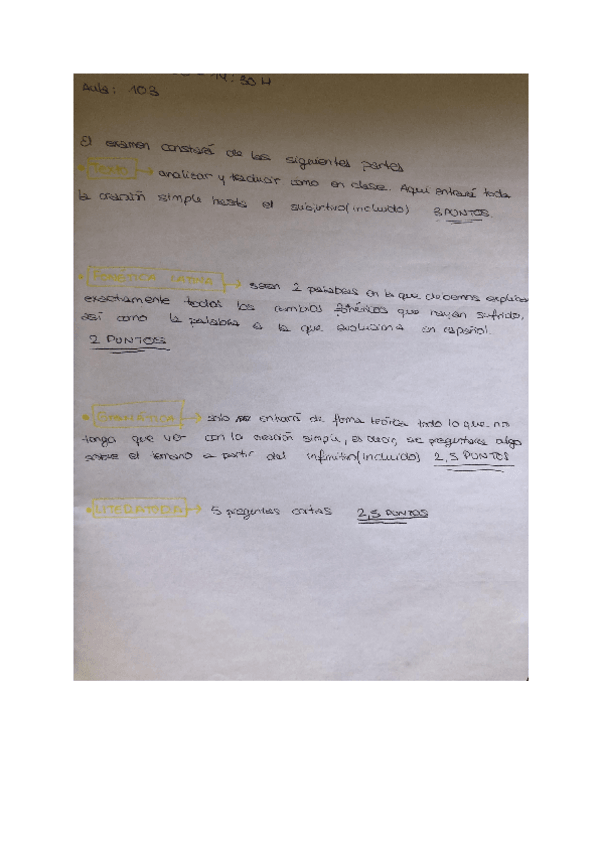 14:30 H
Aula: 103
El examen constará de las siguientes partes
• Texto → analizar y traducir como en clase. Aquí entrará toda
la oración simple hasta el subjuntivo (incluido) 3 PUNTOS.
• FONÉTICA LATINA → serán 2 palabras en la que debemos explicar
exactamente todos los cambios fonéticos que hayan sufrido,
así como la palabra a la que evoluciona en español.
2 PUNTOS
• GRAMÁTICA → solo se entrará de forma teórica todo lo que no
tenga que ver con la oración simple, es decir, se preguntará algo
sobre el temario a partir del infinitivo (incluido) 2,5 PUNTOS
• LITERATURA → 5 preguntas cortas 2,5 PUNTOS